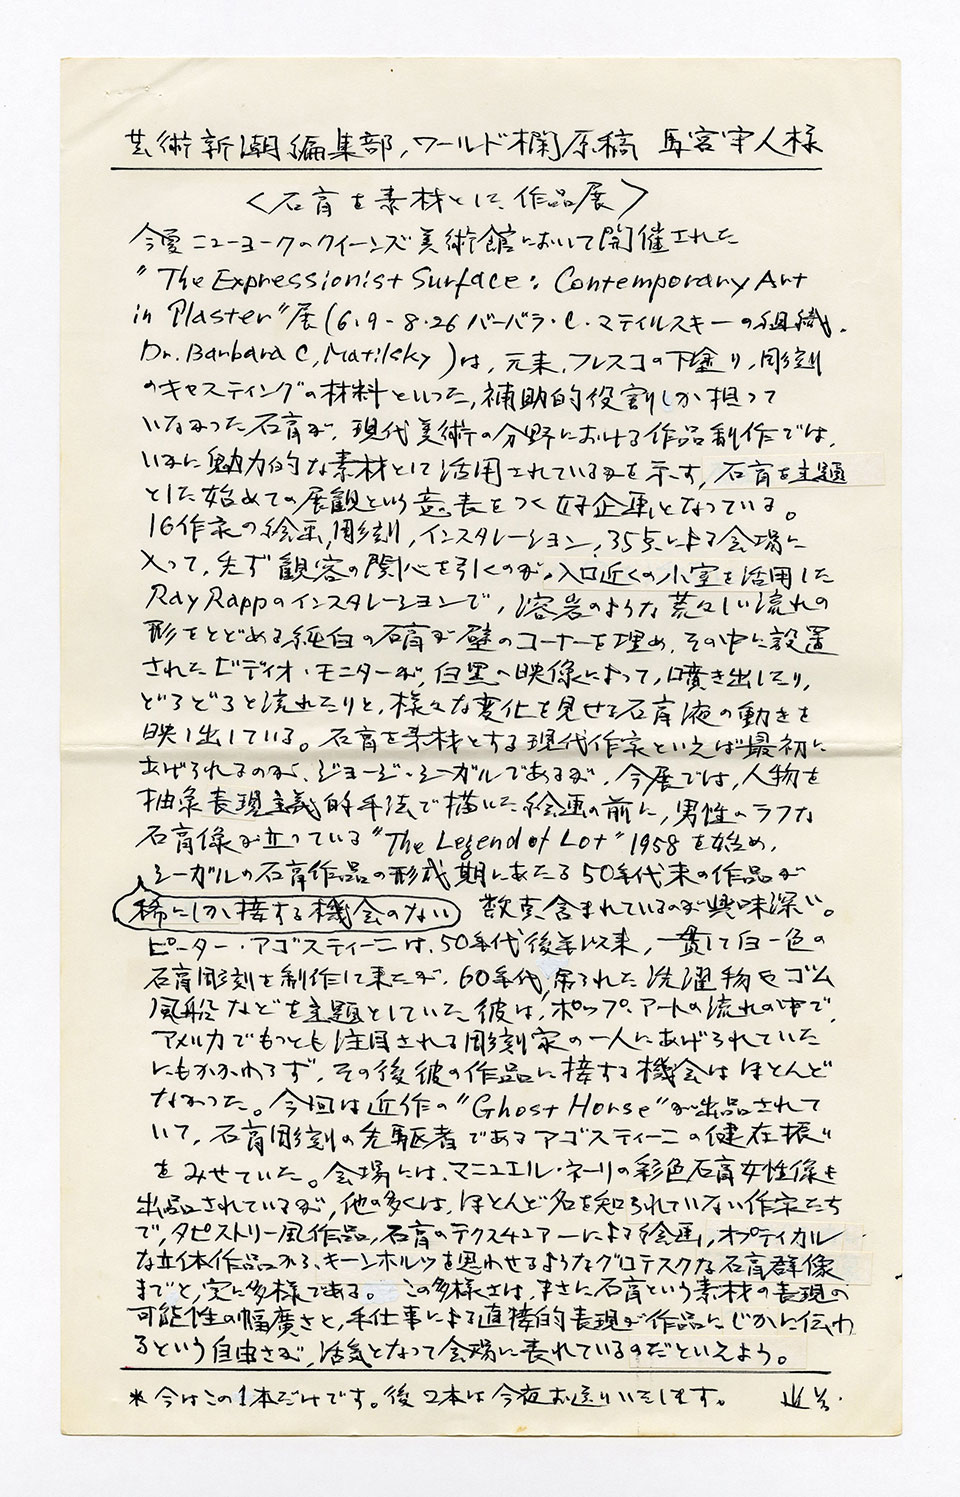 芸術新潮編集部,ワールド欄原稿 馬宮守人様
〈石膏を素材とした作品展〉
今夏ニューヨークのクイーンズ美術館において開催された
"The Expressionist Surface: Contemporary Art
in Plaster"展(6・9-8・26 バーバラ・C・マティルスキーの組織.
Dr. Barbara C, Matilsky)は,元来,フレスコの下塗り,彫刻
のキャスティングの材料といった,補助的役割しか担って
いなかった石膏が,現代美術の分野における作品制作では,
いかに魅力的な素材として活用されているかを示す,石膏を主題
とした始めての展観という意表をつく好企画となっている。
16作家の絵画,彫刻,インスタレーション,35点による会場に
入って,先ず観客の関心を引くのが,入口近くの小室を活用した
Ray Rappのインスタレーションで,溶岩のような荒々しい流れの
形をとどめる純白の石膏が壁のコーナーを埋め,その中に設置
されたビディオ・モニターが,白黒の映像によって,噴き出したり,
どろどろと流れたりと,様々な変化を見せる石膏液の動きを
映し出している。石膏を素材とする現代作家といえば最初に
あげられるのが,ジョージ・シーガルであるが,今展では,人物を
抽象表現主義的手法で描いた絵画の前に,男性のラフな
石膏像が立っている"The Legend of Lot"1958を始め,
シーガルの石膏作品の形成期にあたる50年代末の作品が
稀にしか接する機会のない 数点含まれているのが興味深い。
ピーター・アゴスティーニは,50年代後半以来,一貫して白一色の
石膏彫刻を制作して来たが,60年代,吊られた洗濯物やゴム
風船などを主題としていた彼は,ポップ・アートの流れの中で,
アメリカでもっとも注目される彫刻家の一人にあげられていた
にもかかわらず,その後彼の作品に接する機会はほとんど
なかった。今回は近作の"Ghost Horse"が出品されて
いて,石膏彫刻の先駆者であるアゴスティーニの健在振り
をみせていた。会場には,マニュエル・ネーリの彩色石膏女性像も
出品されているが,他の多くは,ほとんど名を知られていない作家たち
で,タピストリー風作品,石膏のテクスチュアーによる絵画,オプティカル
な立体作品から,キーンホルツを思わせるようなグロテスクな石膏群像
までと,実に多様である。この多様さは,まさに石膏という素材の表現の
可能性の幅廣さと,手仕事による直接的表現が作品にじかに伝わ
るという自由さが,活気となって会場に表れているのだといえよう。
*今はこの1本だけです。後2本は今夜お送りいたします。